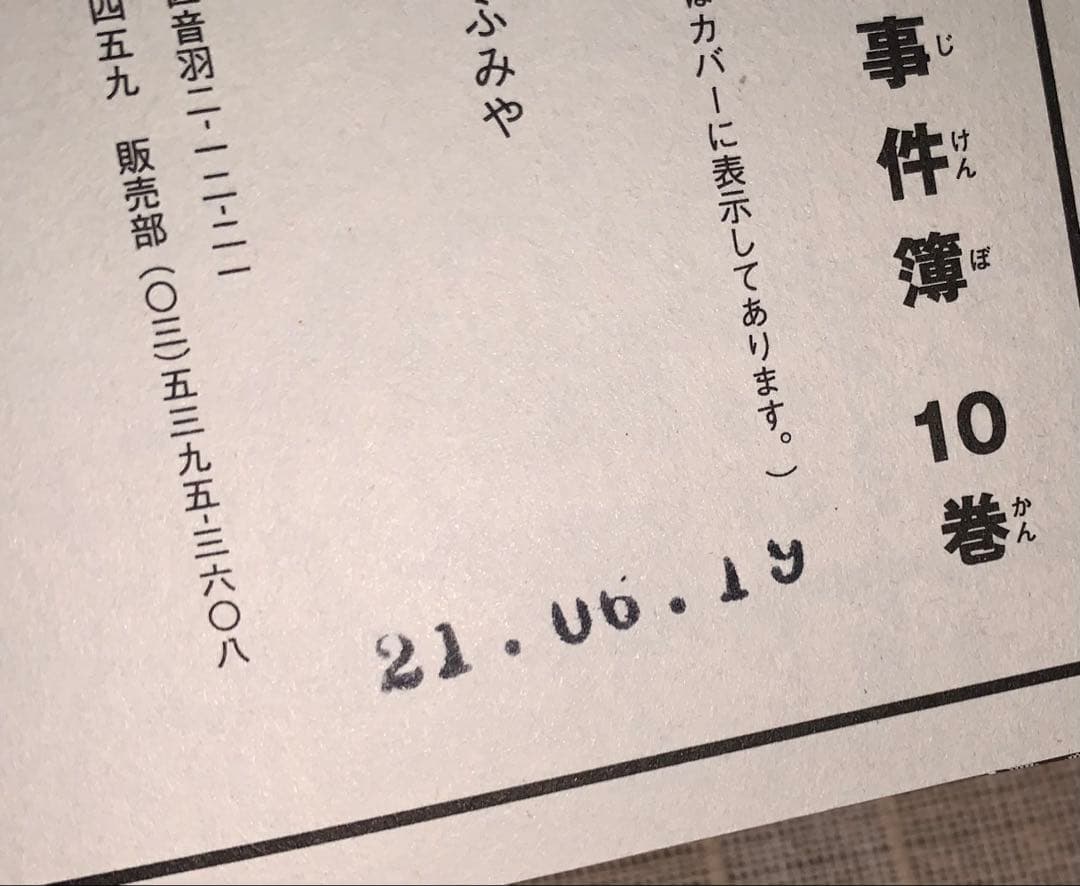 事件簿 10巻
じけんぼ かん
はカバーに表示してあります。）
ふみや
音羽二-一二-二一
四五九 販売部（〇三）五三九五-三六〇八
21.06.19